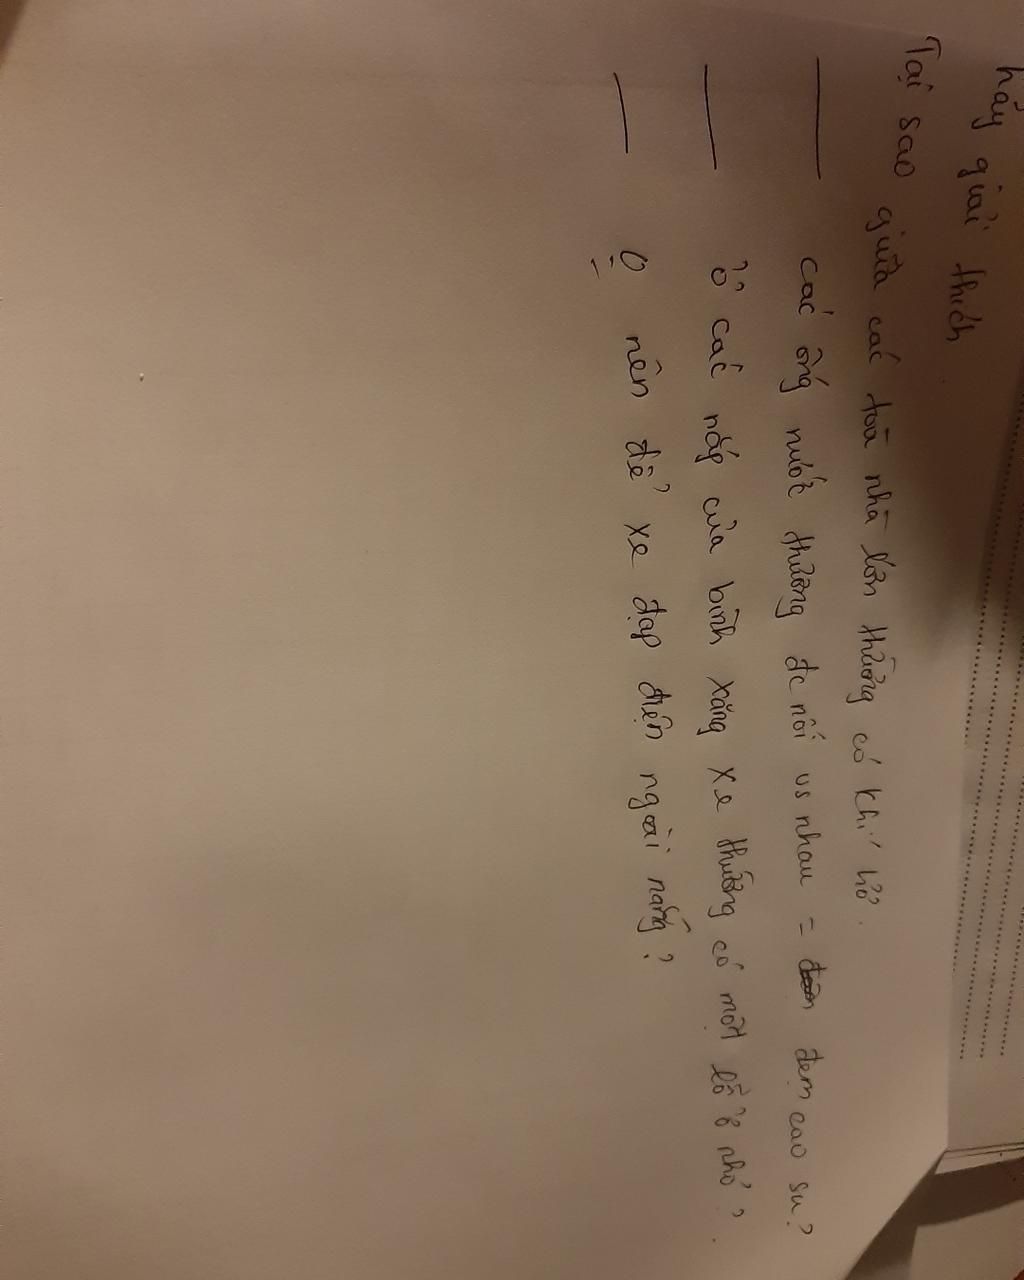 hãy giải thích
Tại sao giữa các toà nhà lớn thường có khí hở.
—— các ống nước thường đc nối vs nhau = đệm cao su?
—— ở các nắp của bình xăng xe thường có một lỗ nhỏ?
—— 0 nên để xe đạp điện ngoài nắng?